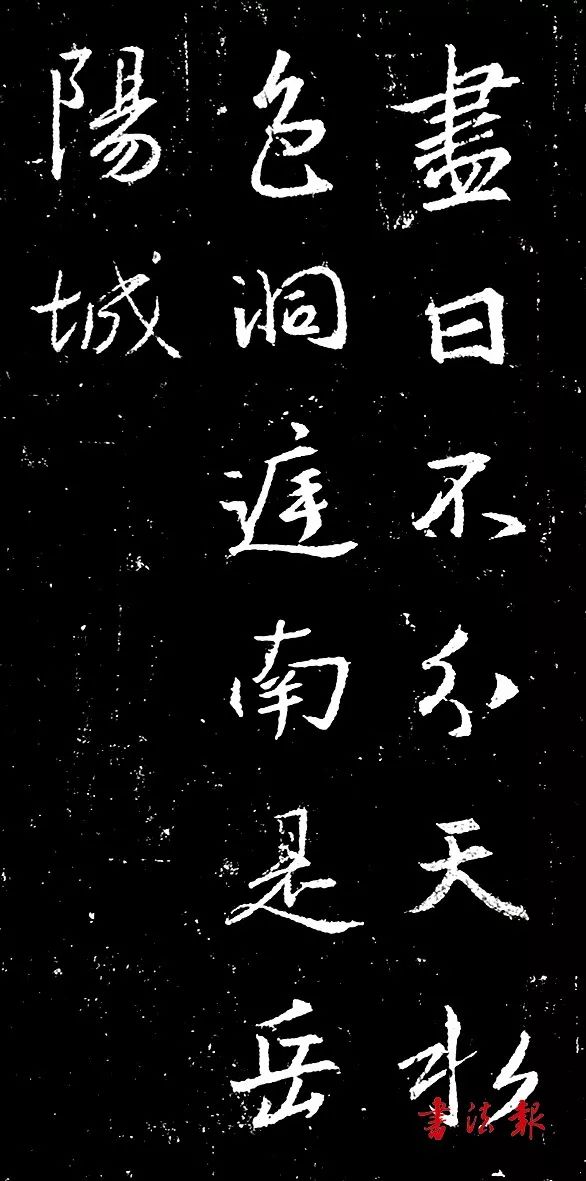 盡日不分天水
色洞庭南是岳
陽城
書法報